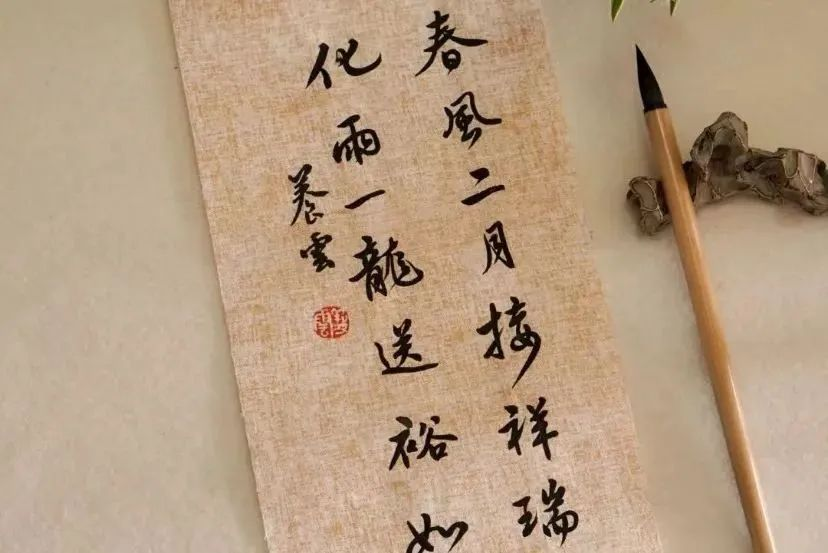 春風二月接祥瑞
化雨一龍送裕如
養雲